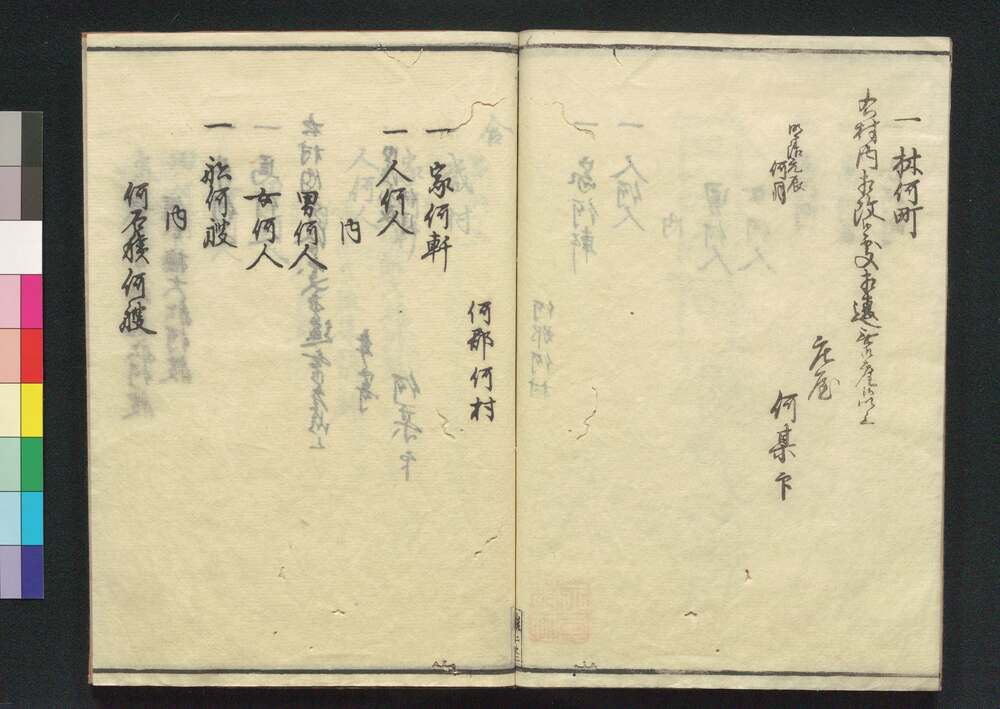 一林何町
右村内相改候処相違無御座候以上
明治元辰
何月
庄屋
何某印
何郡何村
一家何軒
一人何人
内
男何人
女何人
一船何艘
内
何石積何艘